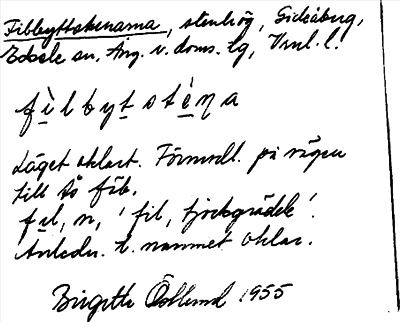 Filbyttstenarna, stenhög, Sidsåberg,
Edsele sn, Ång. v. doms. lg, Vnl. l.
fìlbytstèṇa
Läget oklart. Förmodl. på vägen
till så fäb.
ful, n, 'fil, tjockgrädde'.
Anledn. t. namnet oklar.
Birgitta Östlund 1955